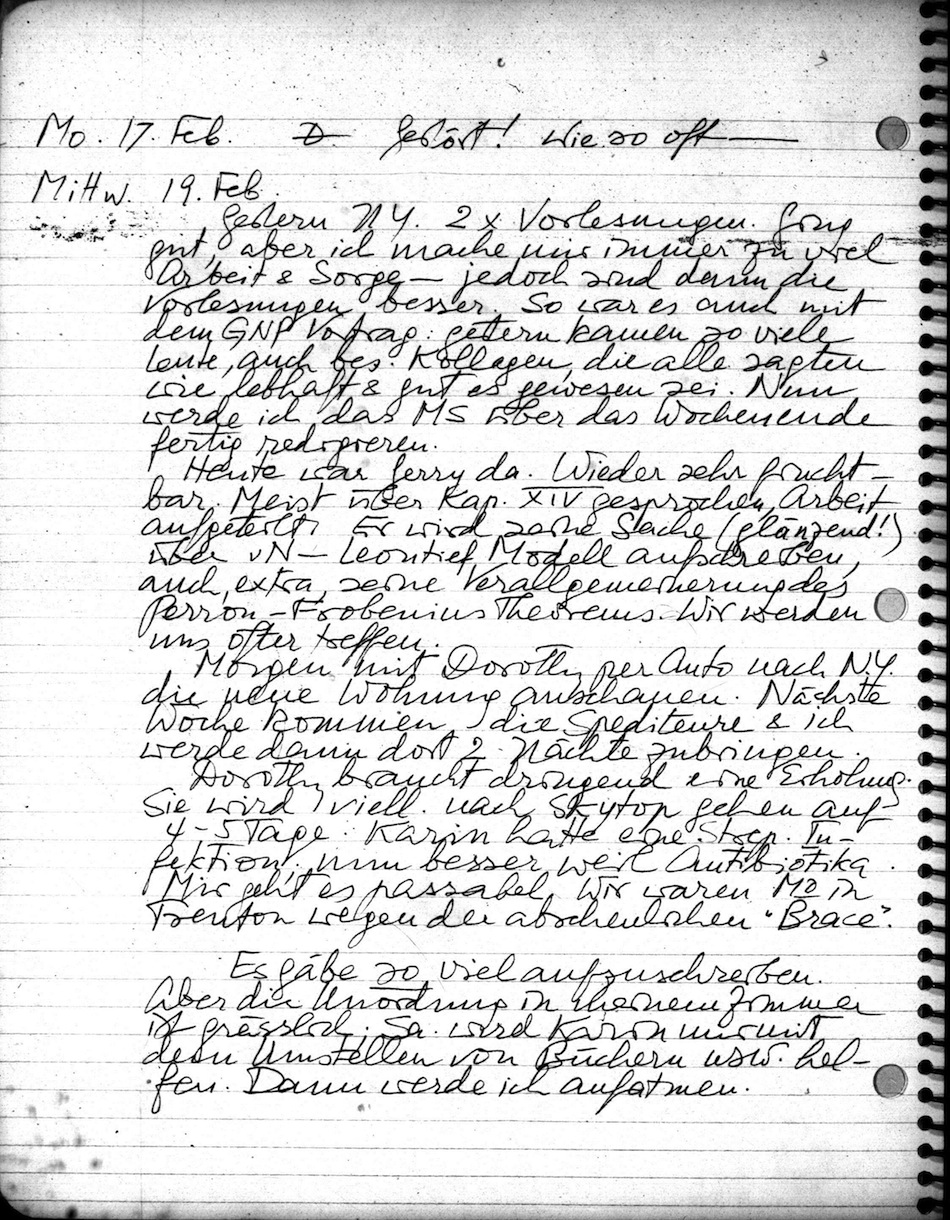 Mo. 17. Feb. D gestört! wie so oft —
Mittw. 19. Feb.
Gestern N.Y. 2 x Vorlesungen. Ging
gut, aber ich mache mir immer zu viel
Arbeit & Sorge — jedoch sind dann die
Vorlesungen besser. So war es auch mit
dem GNP Vortrag: gestern kamen so viele
Leute, auch bes. Kollegen, die alle sagten
wie lebhaft & gut es gewesen sei. Nun
werde ich das MS über das Wochenende
fertig redigieren.
Heute war Gerry da. Wieder sehr frucht-
bar. Meist über Kap. XIV gesprochen, Arbeit
aufgeteilt. Er wird seine Sache (glänzend!)
über vN – Leontief Modell aufschreiben,
auch, extra, seine Verallgemeinerung des
Perron-Frobenius Theorems. Wir werden
uns öfter treffen.
Morgen mit Dorothy per Auto nach N.Y.
die neue Wohnung anschauen. Nächste
Woche kommen die Spediteure & ich
werde dann dort 2 Nächte zubringen.
Dorothy braucht dringend eine Erholung.
Sie wird viell. nach Skytop gehen auf
4-5 Tage. Karin hatte eine Strep. In-
fektion, nun besser weil Antibiotika.
Mir geht es passabel. Wir waren Mo in
Trenton wegen der abscheulichen "Brace".
Es gäbe so viel aufzuschreiben.
Aber die Unordnung in meinem Zimmer
ist grässlich. Sa. wird Karin mir mit
dem Umstellen von Büchern usw. hel-
fen. Dann werde ich aufatmen.